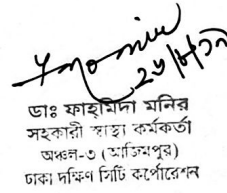 ২৬/৮/১৯
ডাঃ ফাহমিদা মনির
সহকারী স্বাস্থ্য কর্মকর্তা
অঞ্চল-৩ (আজিমপুর)
ঢাকা দক্ষিণ সিটি কর্পোরেশন